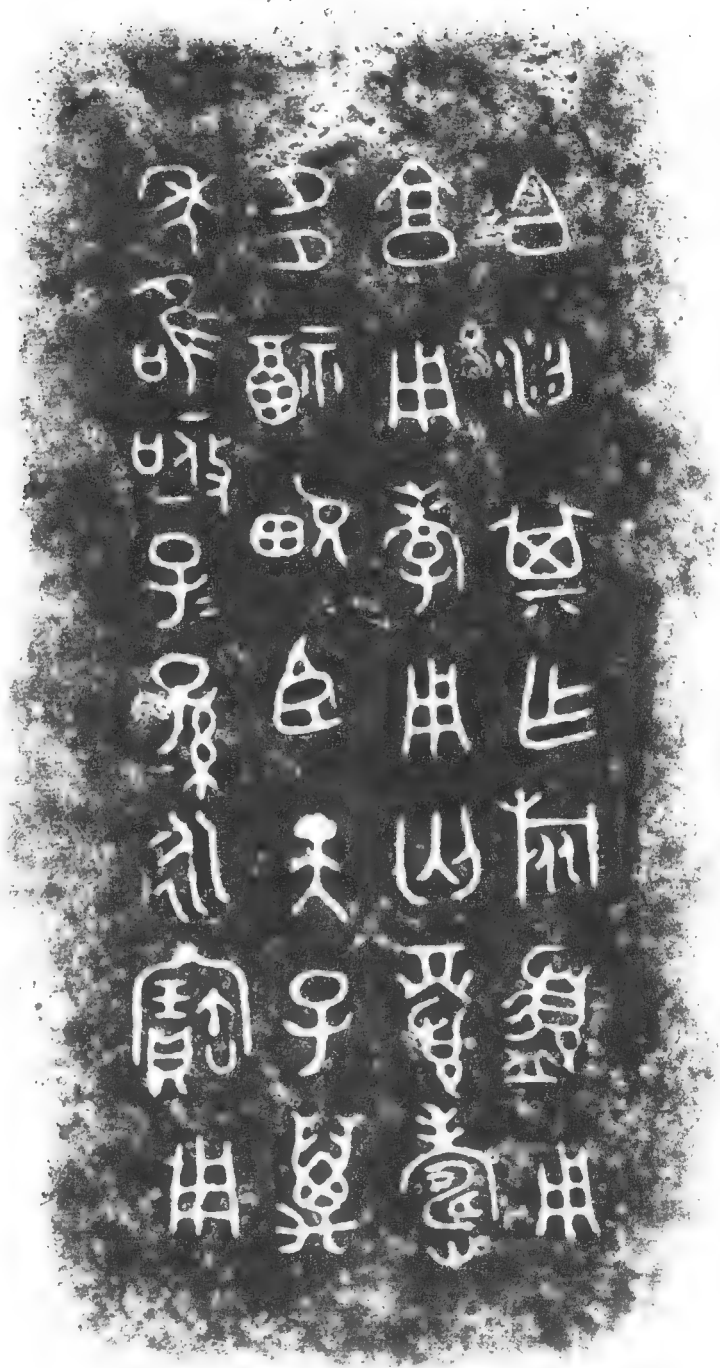 白汈其乍旅盨用
享用孝用匄眉壽
多福畯臣天子萬
年唯亟子=孫=永寶用